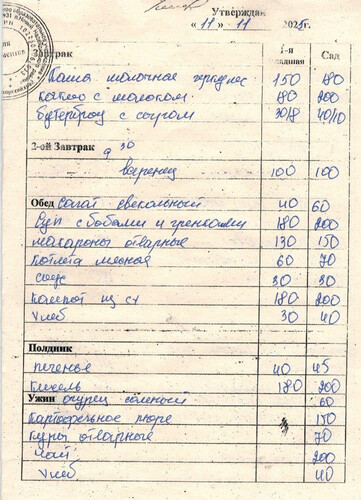 Утверждаю
« 11 » 11 202 г.
1-я Сад
Завтрак
Каша молочная геркулес 150 180
с молоком 180 200
Бутерброд с сыром 30/8 40/10
2-ой Завтрак
9 30
100 100
Обед Салат свекольный 40 60
Суп с бобами и гренками 180 200
Макароны отварные 130 150
Котлета мясная 60 70
Соус 30 30
Компот из с/х 180 200
Хлеб 30 40
Полдник
печенье 40 45
Кисель 180 200
Ужин огурец соленый 60
Картофельное пюре 150
Куры отварные 70
Чай 200
Хлеб 40